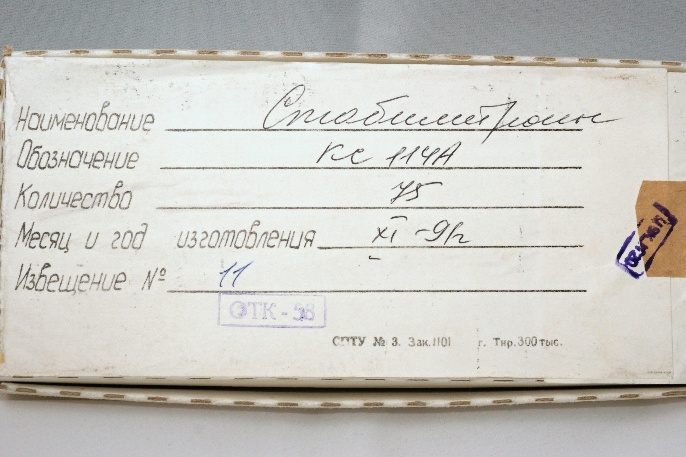 Наименование Стабилитроны
Обозначение КС 114А
Количество 75
Месяц и год изготовления XI -91г
Извещение № 11
ОТК - 58
СПТУ № 3. Зак. 1101 г. Тир. 300 тыс.